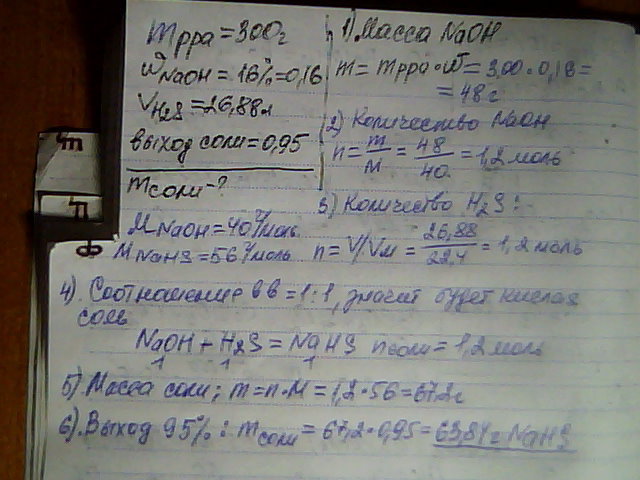 mрра=300г
ω NaOH = 16%=0,16
V H2S =26,88л
выход соли=0,95
mсоли-?
M NaOH=40г/моль
M NaHS=56г/моль
1) Масса NaOH
m= mрра·ω= 300·0,16=
= 48г
2) Количество NaOH
n= m/M = 48/40 = 1,2 моль
3) Количество H2S:
n= V/Vм = 26,88/22,4 = 1,2 моль
4) Соотношение вв=1:1, значит будет кислая
соль
NaOH + H2S = NaHS nсоли= 1,2 моль
1 1 1
5) Масса соли; m=n·M=1,2·56=67,2г
6) Выход 95%: mсоли= 67,2·0,95=63,84г NaHS
т
п
ф